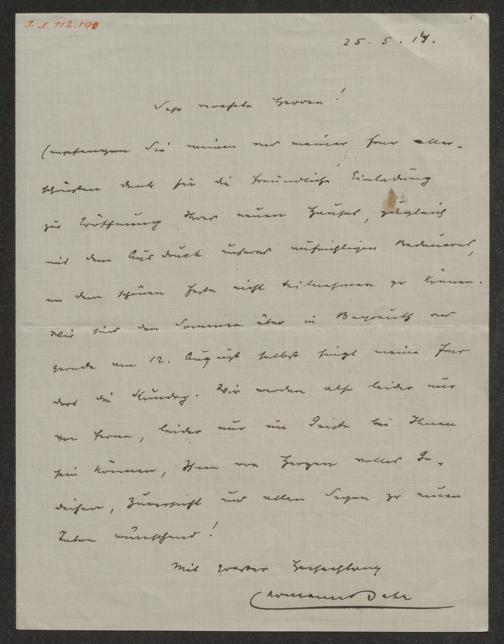 I.N. 112.190
25.5.14.
Sehr verehrte Herren!
Empfangen Sie meinen und meiner Frau aller-
schönsten Dank für die freundliche Einladung
zur Eröffnung Ihres neuen Hauses, zugleich
mit dem Ausdruck unseres aufrichtigen Bedauerns,
an dem schönen Feste nicht teilnehmen zu können.
Wir sind den Sommer über in Bayreuth und
gerade am 12. August selbst singt meine Frau
dort die Kundry. Wir werden also leider nur
von ferne, leider nur im Geiste bei Ihnen
sein können, Ihnen von Herzen volles Ge-
deihen, Zuversicht und allen Segen zu neuen
Taten wünschend!
Mit wahrer Hochachtung
Hermann Bahr